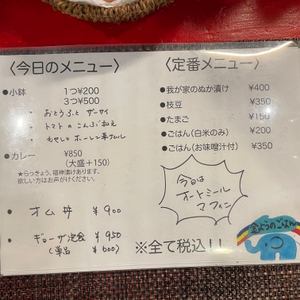 〈今日のメニュー〉
●小鉢 1つ¥200
3つ¥500
・おとうふとザーサイ
・トマトのこんぶ和え
●カレー ¥850
(大盛+150)
★らっきょう、福神漬けあります。
欲しい方はお声がけください。
●オム丼 ¥900
●ギョーザ定食 ¥950
(単品 ¥600)
〈定番メニュー〉
●我が家のぬか漬け ¥400
●枝豆 ¥350
●たまご ¥150
●ごはん(白米のみ) ¥200
●ごはん(お味噌汁付) ¥350
今日は
オートミール
マフィン
※全て税込!!
金ようのごはん